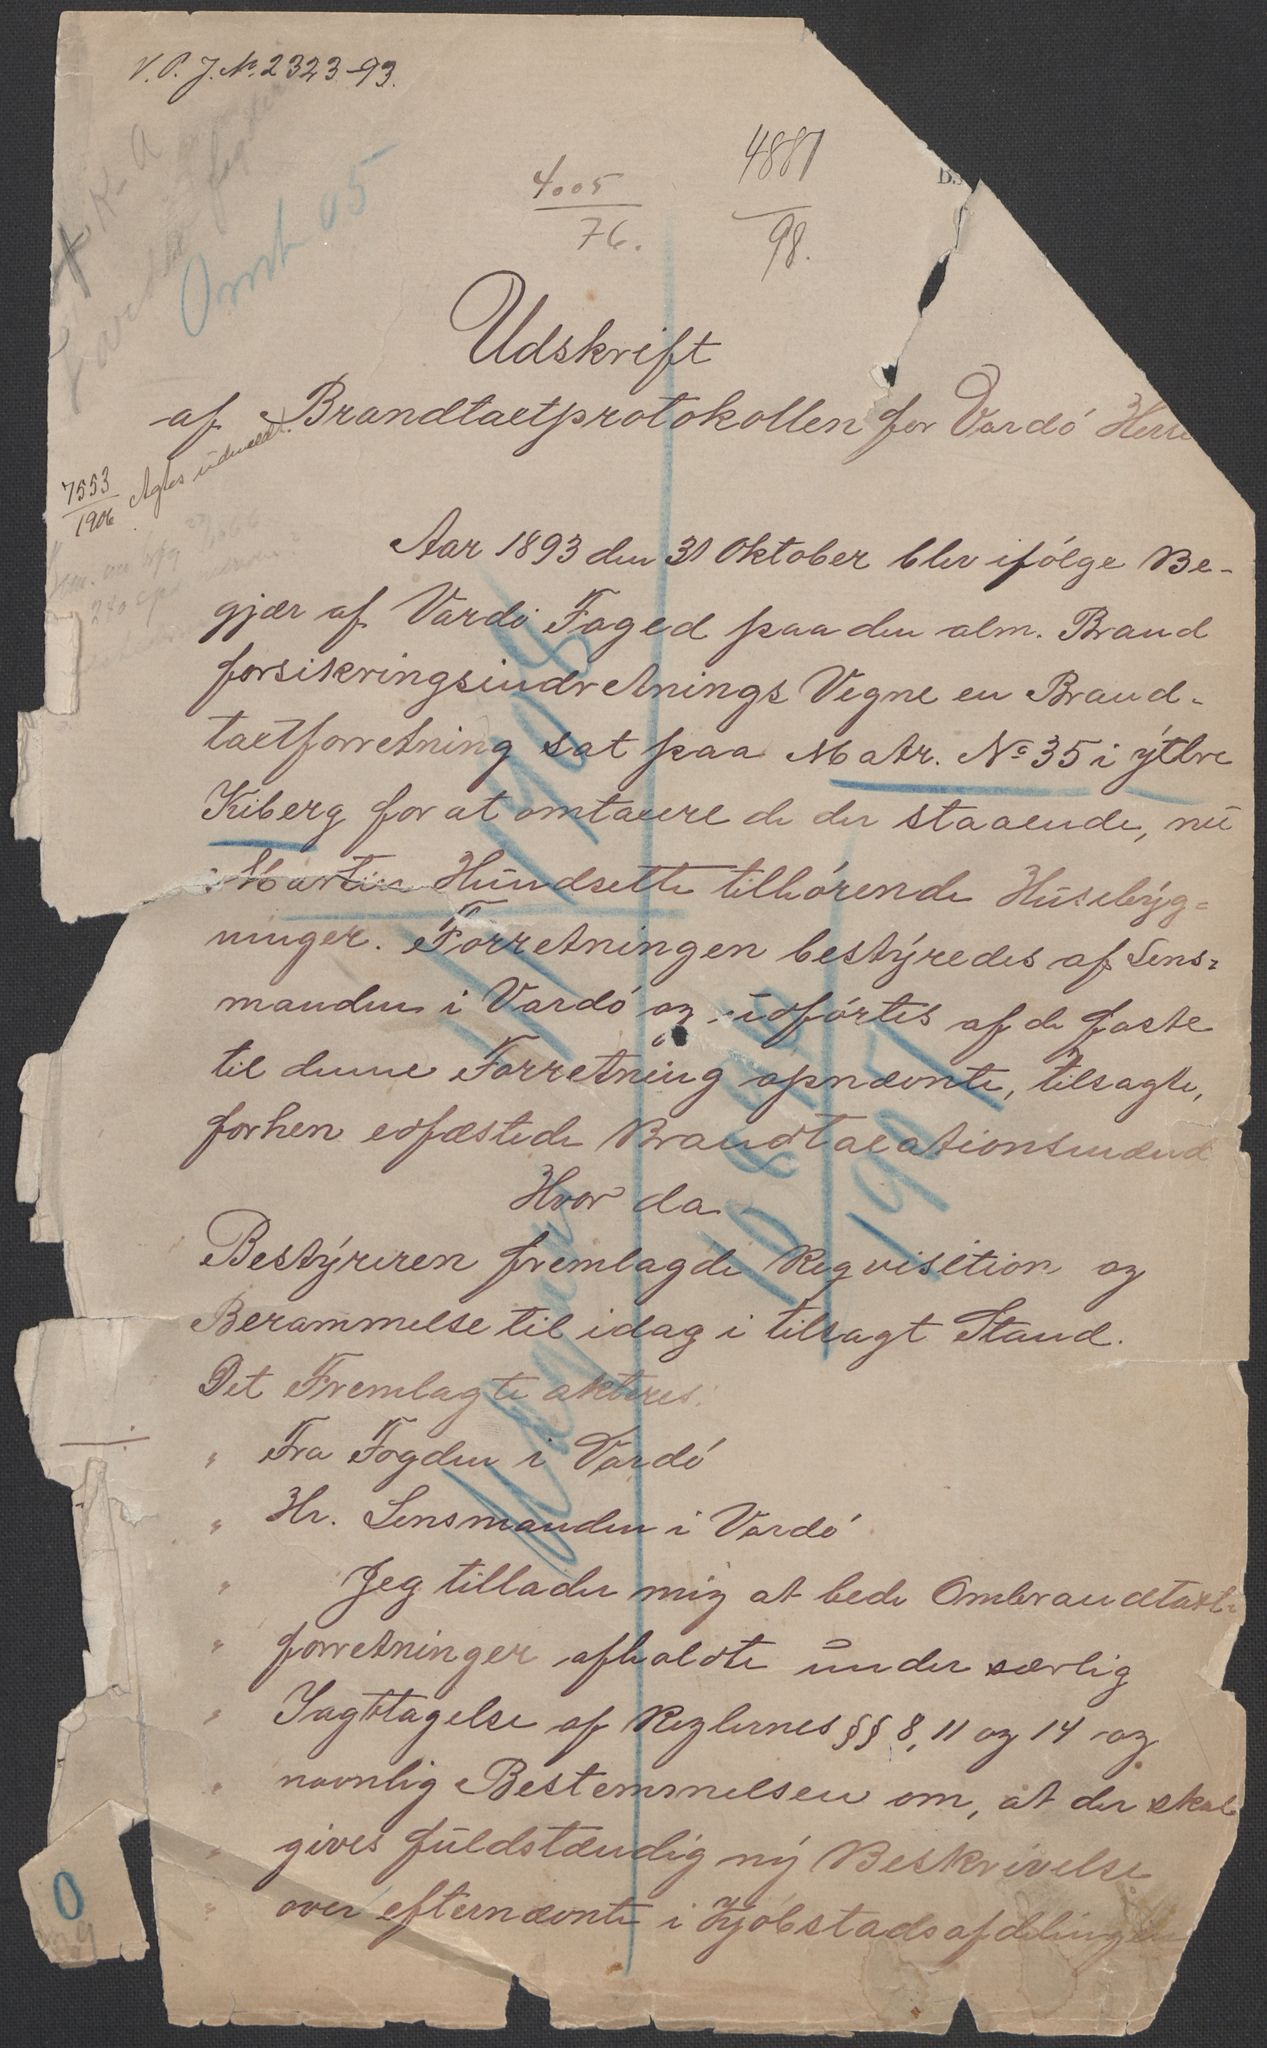 V. P. J. No. 2323-93.
4005
76.
4887
98.
Omt 05
Udskrift
af Brandtaxtprotokollen for Vardö Herre
7553
1906
Aar 1893 den 31 Oktober blev ifölge Be-
gjær af Vardö Foged paa den alm. Brand
forsikringsindretnings Vegne en Brand-
taxtforretning sat paa Matr. No 35 i ytre
Kiberg for at omtaxere de der staaende, nu
Martin Hundsette tilhörende Husebyg-
ninger. Forretningen bestyredes af Lens-
manden i Vardö og udförtes af de faste
til denne Forretning opnævnte, tilsagte,
forhen edfæstede Brandtaxationsmænd
Hvor da
Bestyreren fremlagde Reqvisition og
Berammelse til idag i tilsagt Stand.
Det Fremlagte akteres:
" Fra Fogden i Vardö
" Hr. Lensmanden i Vardö
" Jeg tillader mig at bede Ombrandtaxt-
" forretninger afholdte under særlig
" Iagttagelse af Reglernes §§ 8, 11 og 14 og
" navnlig Bestemmelsen om, at der skal
" gives fuldstændig ny Beskrivelse
" over efternævnte i Kjöbstadsafdelingen
1908
1898
1907
0